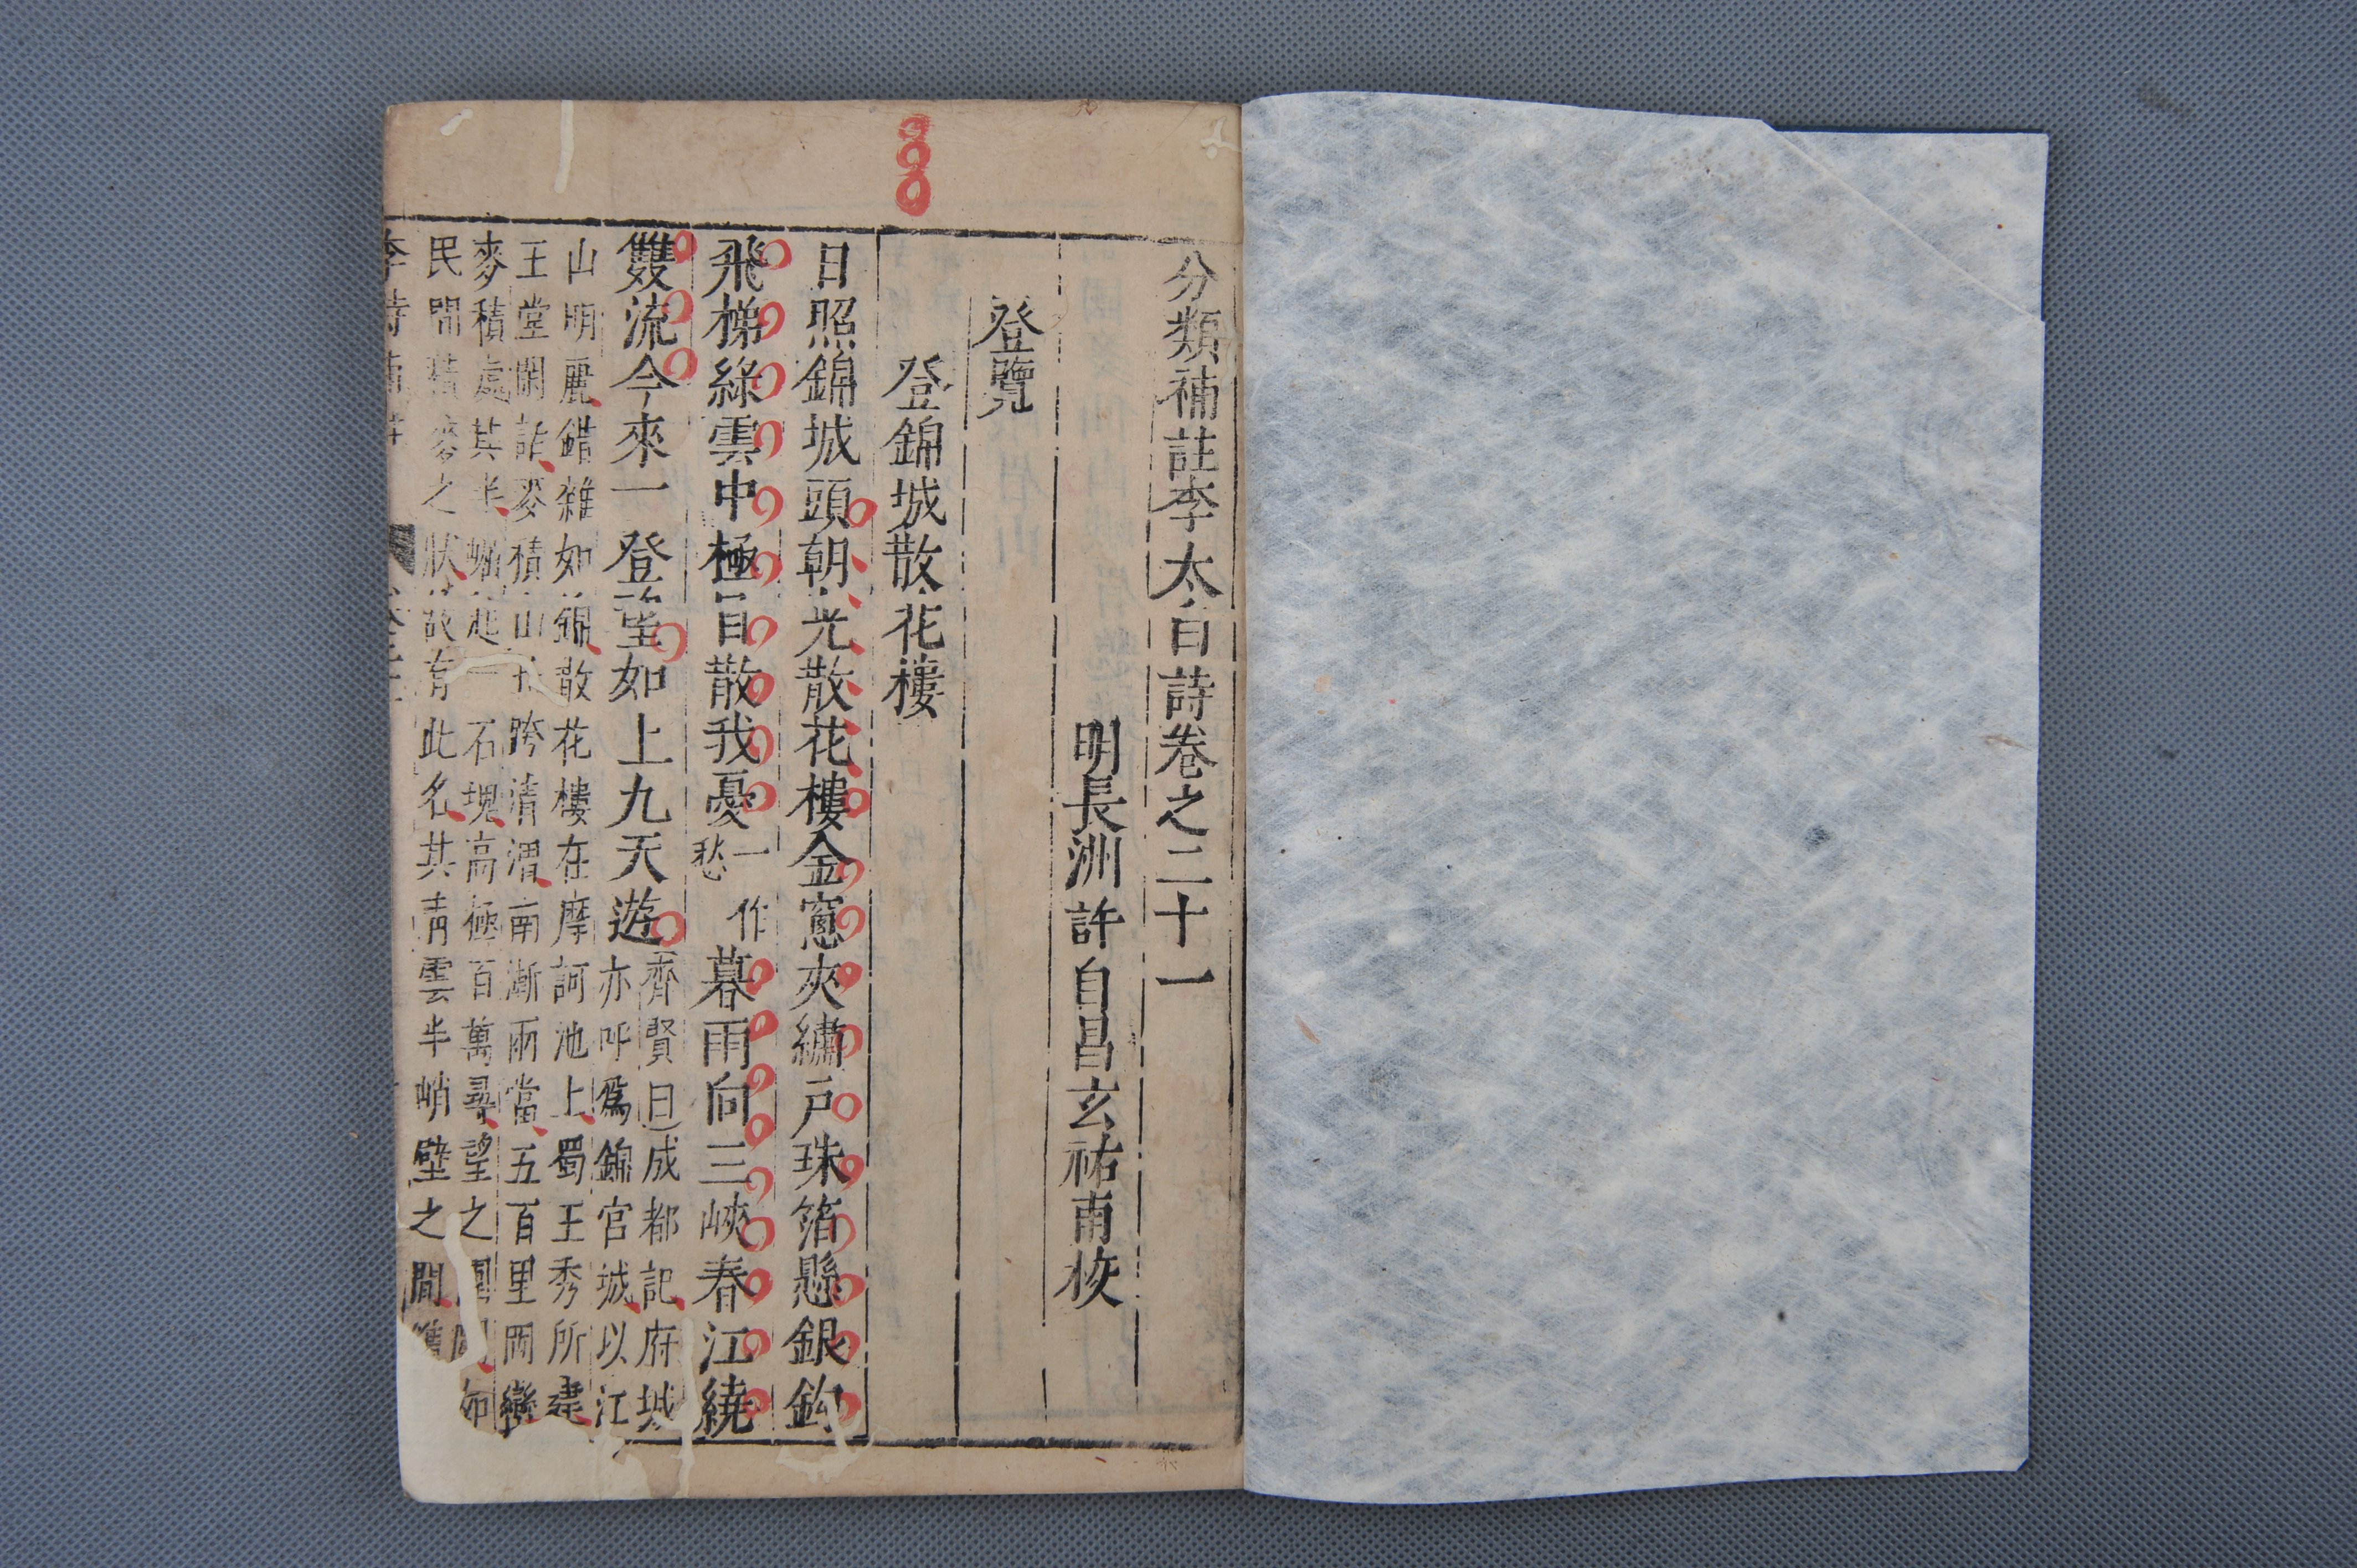 分類補註李太白詩卷之二十一
明長洲許自昌玄祐甫校
登覽
登錦城散花樓
日照錦城頭朝光散花樓金窓夾繡戶珠箔懸銀鈎
飛梯綠雲中極目散我憂一作愁暮雨向三峽春江繞
雙流今來一登望如上九天遊齊賢曰成都記府城
亦呼爲錦官城以江
山明麗錯雜如錦散花樓在摩訶池上蜀王秀所建
王堂閑話麥積山北跨清渭南漸兩當五百里岡巒
麥積處其半崛起一石塊高極百萬尋望之團團如
民間積麥之狀故有此名其青雲半峭壁之間